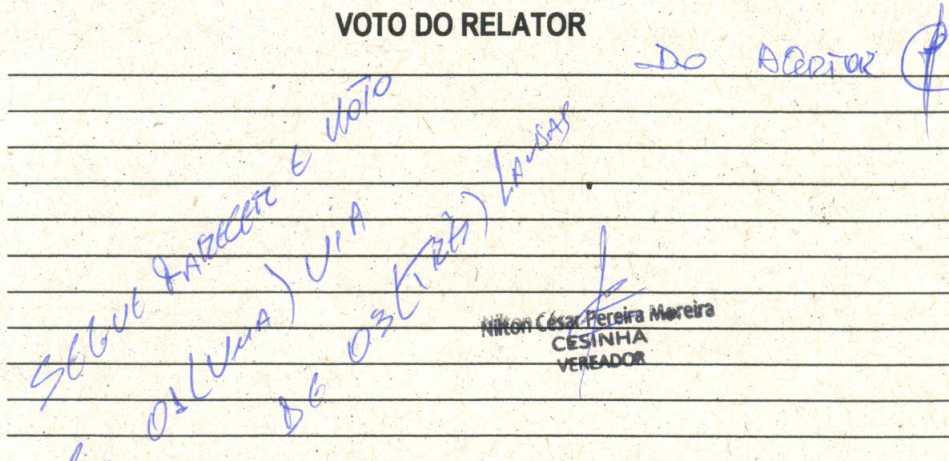 VOTO DO RELATOR
DO
SEGUE PARECER E VOTO
01 (UMA) VIA
DE 03 (TRÊS) LAUDAS
Nilton César Pereira Moreira
CESINHA
VEREADOR